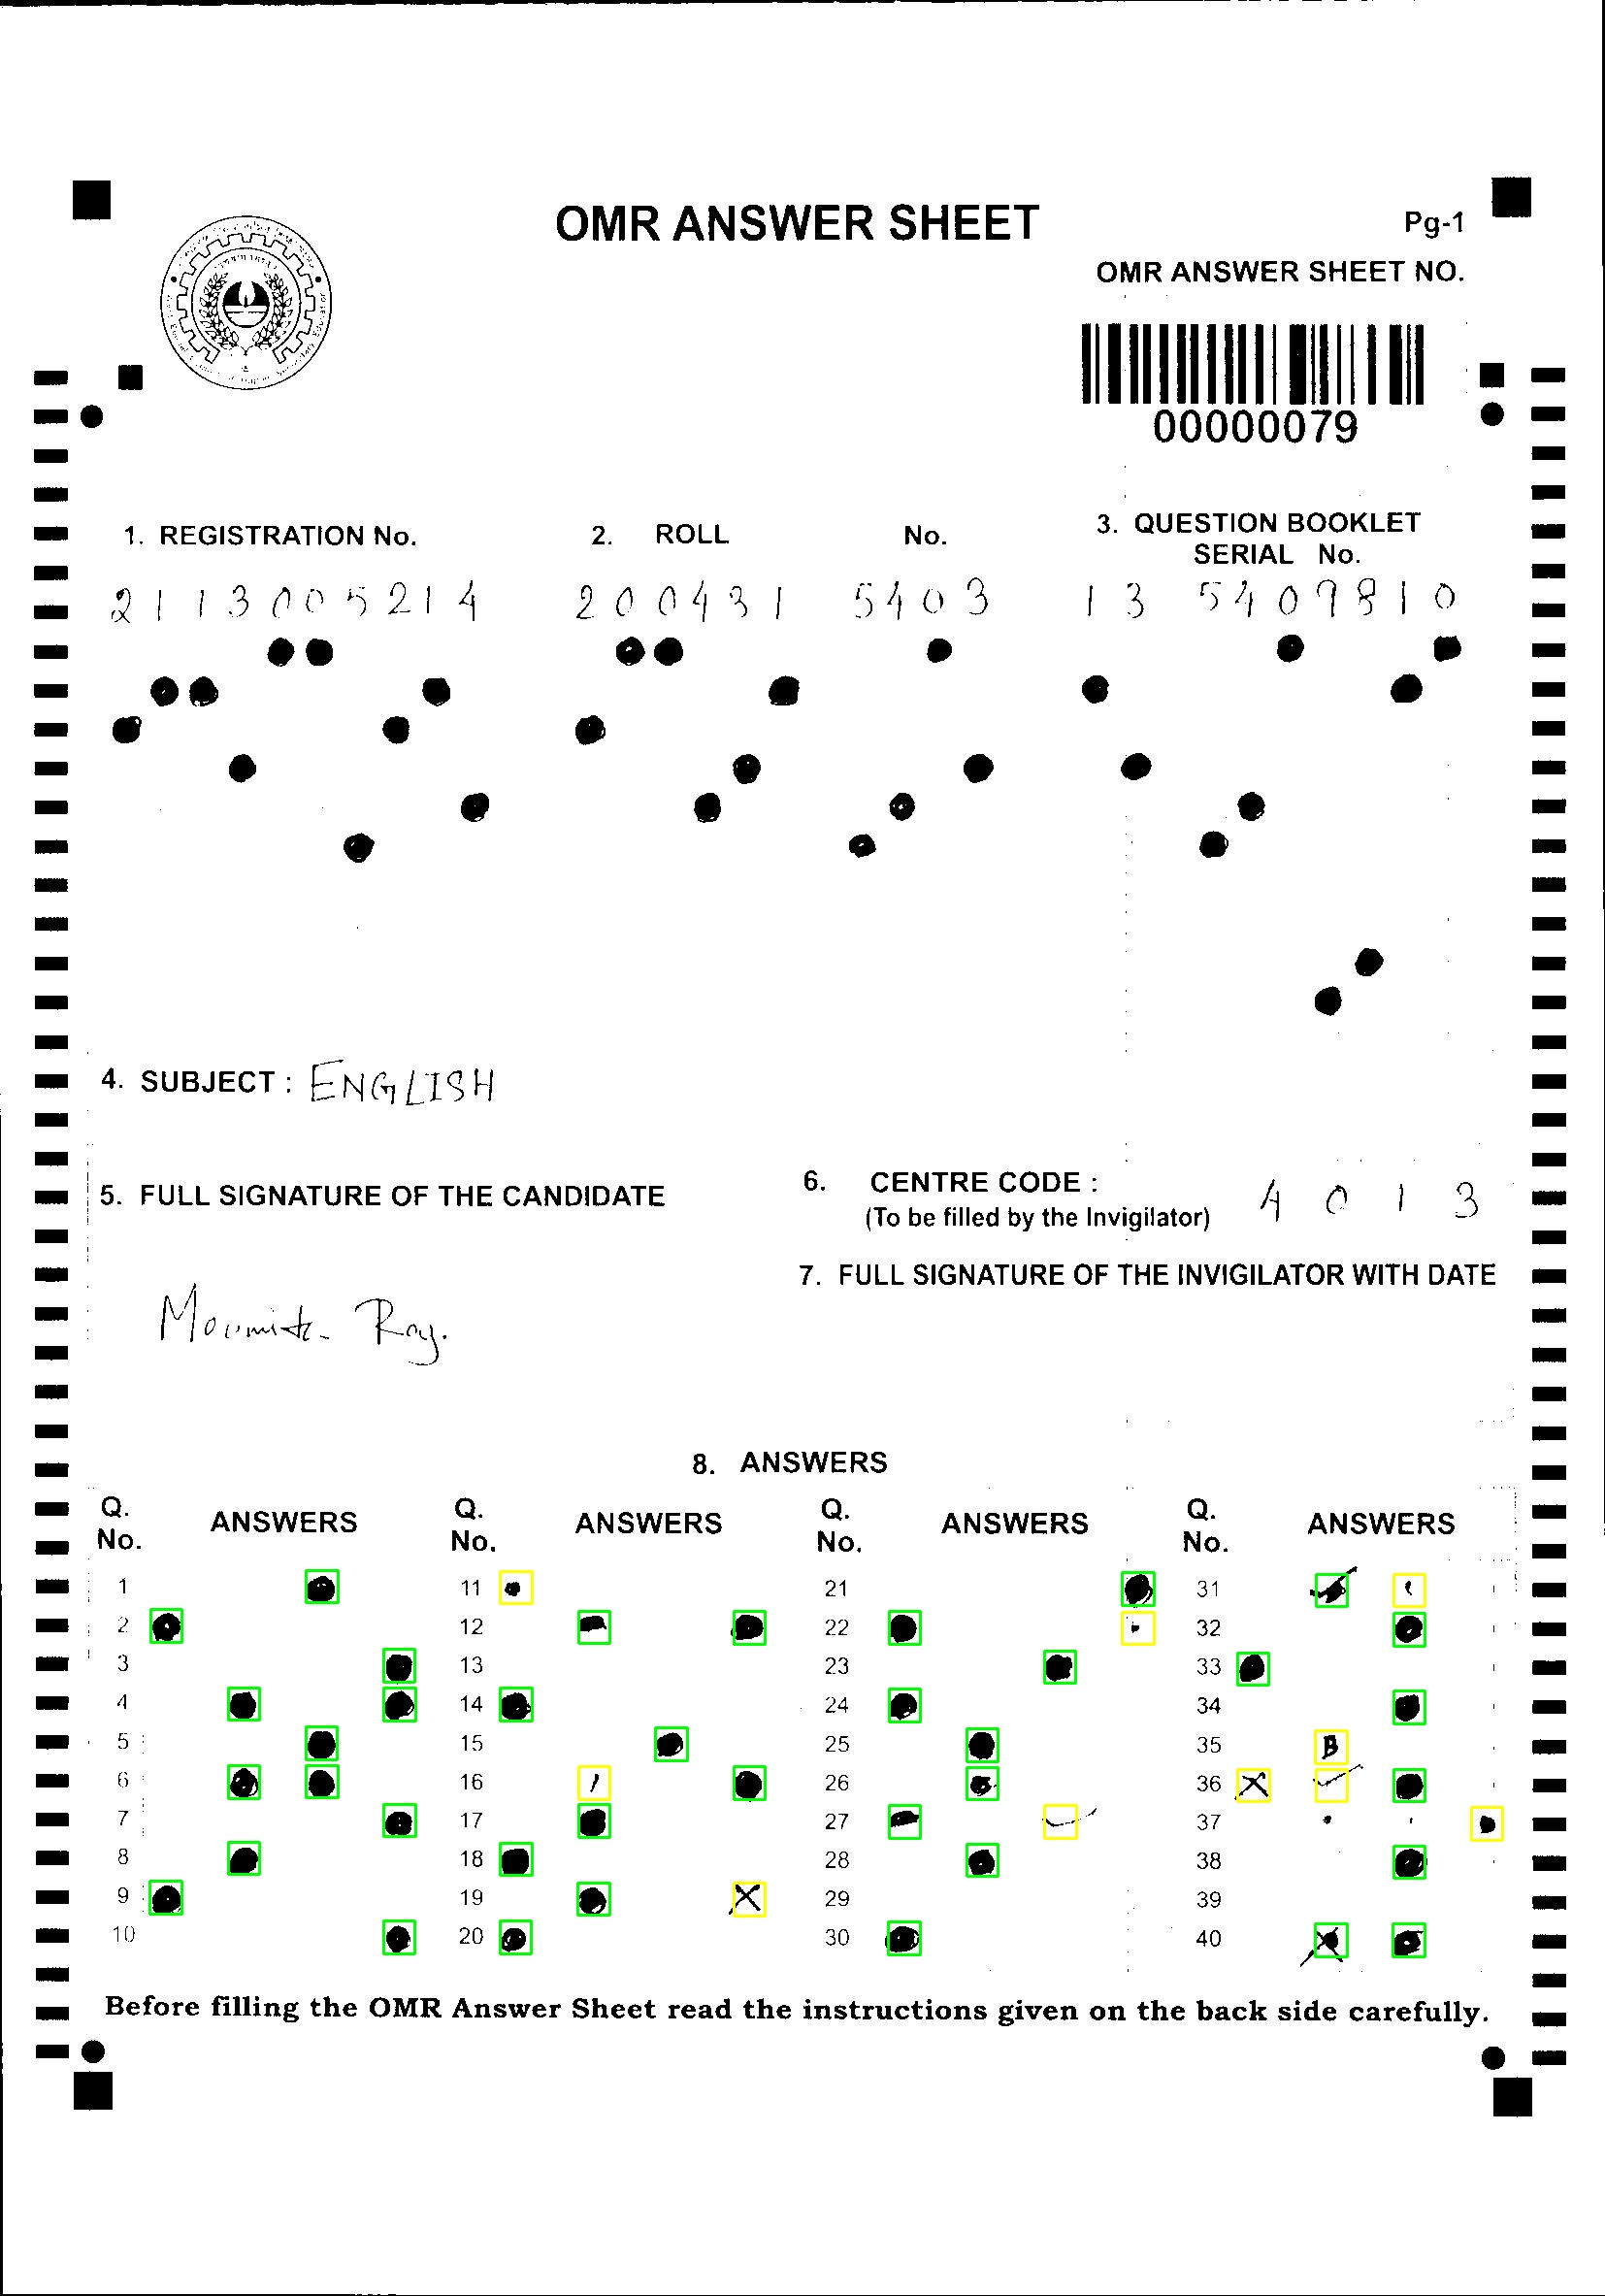 OMR ANSWER SHEET
Pg-1
OMR ANSWER SHEET NO.
00000079
1. REGISTRATION No.
2113005214
2. ROLL No.
200431 5403
3. QUESTION BOOKLET
SERIAL No.
13 5409810
4. SUBJECT : ENGLISH
5. FULL SIGNATURE OF THE CANDIDATE
Ray.
6. CENTRE CODE :
(To be filled by the Invigilator)
4 0 1 3
7. FULL SIGNATURE OF THE INVIGILATOR WITH DATE
8. ANSWERS
Q. No. ANSWERS Q. No. ANSWERS Q. No. ANSWERS Q. No. ANSWERS
1 11 21 31
2 12 22 32
3 13 23 33
4 14 24 34
5 15 25 35 B
6 16 26 36
7 17 27 37
8 18 28 38
9 19 29 39
10 20 30 40
Before filling the OMR Answer Sheet read the instructions given on the back side carefully.